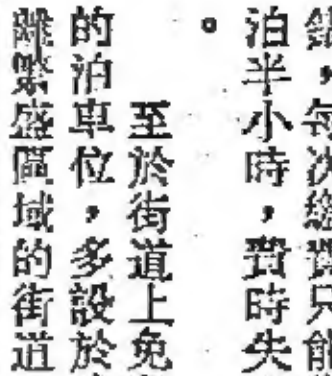 ，每次繳費只能
泊半小時，費時失
。
至於街道上免
的泊車位，多設於
離繁盛區域的街道